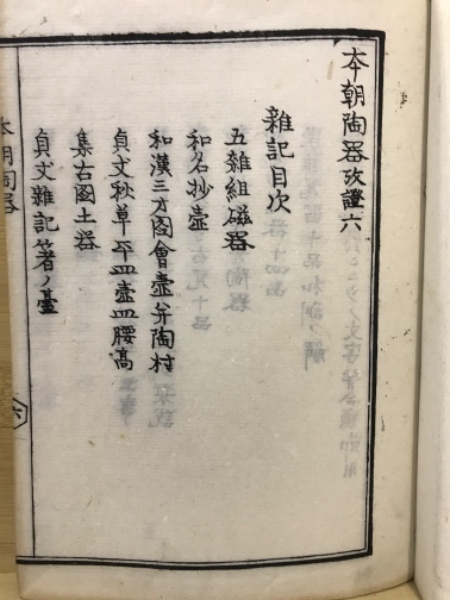 本朝陶器攷證六
雜記目次
五雜組磁器
和名抄壺
和漢三才圖會壺并陶村
貞丈秋草平皿壺皿腰高
集古圖土器
貞丈雜記箸ノ臺
本朝陶器
六